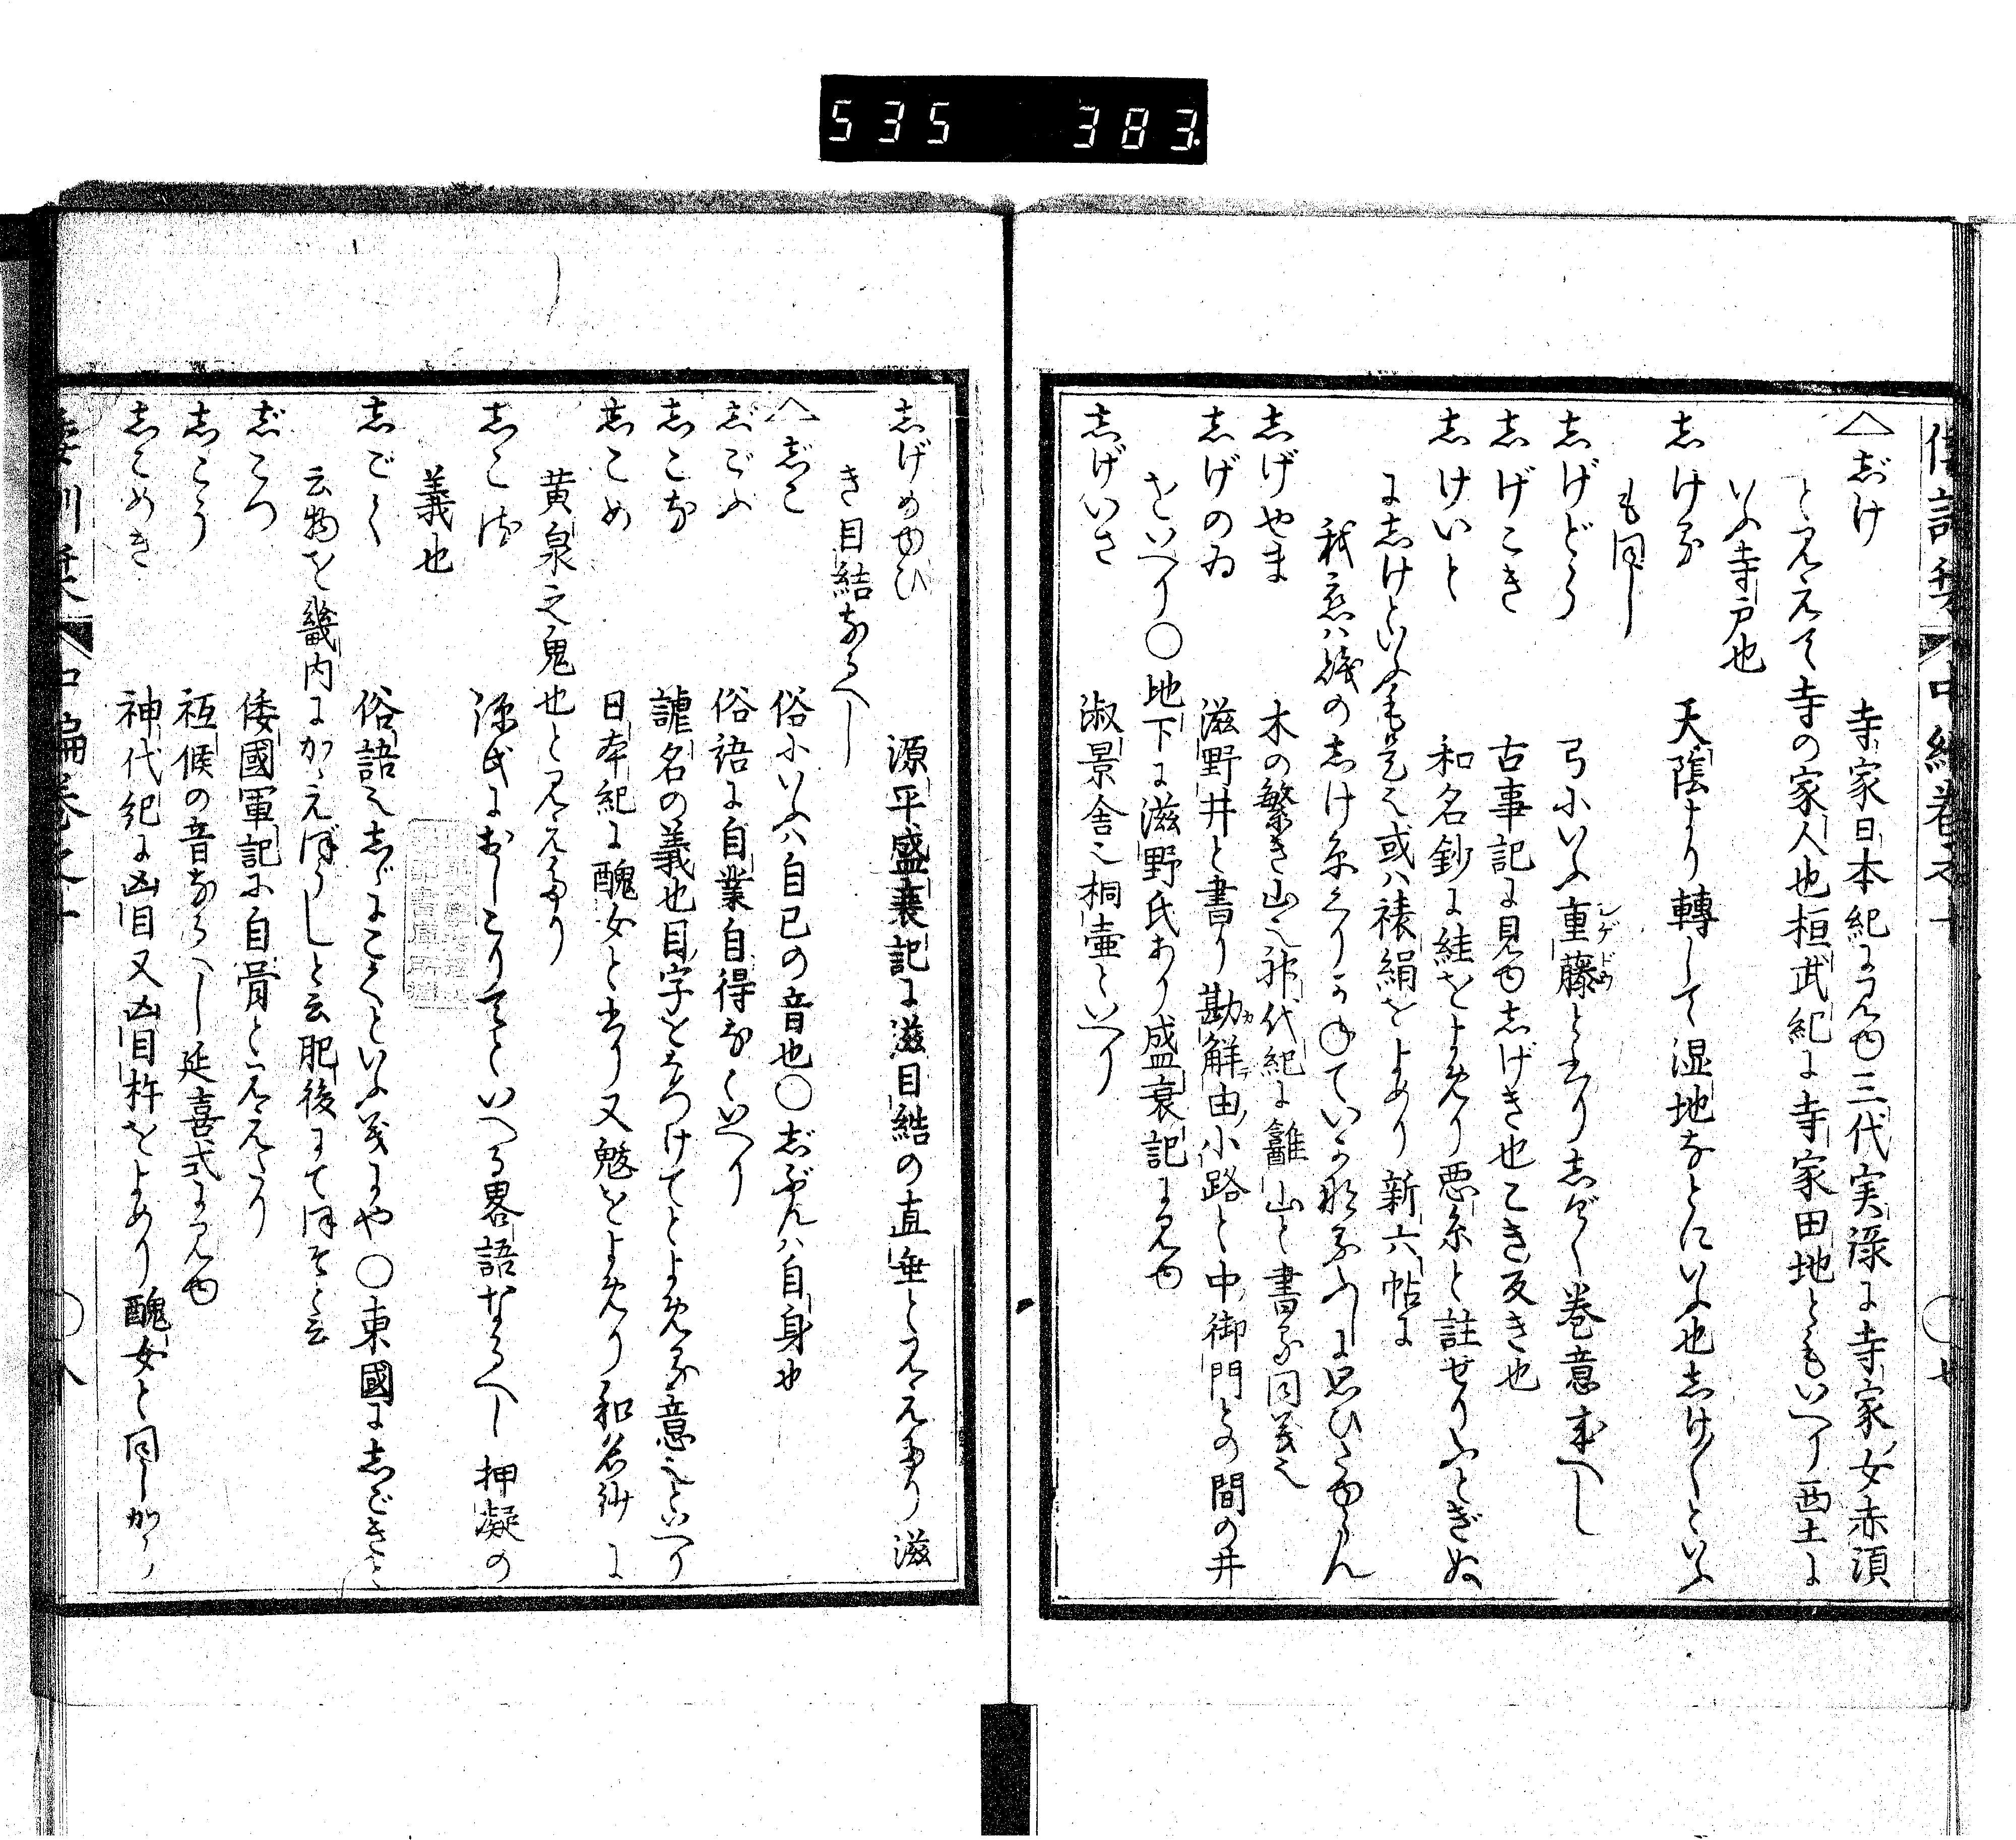 535 383
倭訓栞 中編巻之十 ○七
△じけ 寺家日本紀に見ゆ三代実禄に寺家女赤須
と見えて寺の家人也桓武紀に寺家田地ともいへり西土に
いふ寺戸也
志ける 天蔭より轉して湿地なとにいふ也志け〳〵といふ
も同し
志げどう 弓にいふ重藤と書り志げく巻意成へし
志げこき 古事記に見ゆ志げき也こき反き也
志けいと 和名鈔に絓をよめり悪糸と註せりふとぎぬ
に志けといふも是也或は䘯絹をよめり新六帖に
我恋は賤の志け糸くりかねていかなるふしに思ひたゆらん
志げやま 木の繁き山也神代紀に雝山と書る同義也
志げのゐ 滋野井と書り勘解由小路と中御門との間の井
をいへり○地下に滋野氏あり盛衰記に見ゆ
志げいさ 淑景舎也桐壷といへり
志げめゆひ 源平盛衰記に滋目結の直垂と見えたり滋
き目結なるへし
△じこ 俗にいふハ自己の音也○志ぶんハ自身也
じごふ 俗語に自業自得なといへり
志こな 謔名の義也目字をそへつけてとよめる意也といへり
志こめ 日本紀に醜女と書り又魃をよめり和名鈔に
黄泉之鬼也と見えたり
志こる 源氏におしこりてといへる畧語なるへし押凝の
義也
志ごく 俗語也志ごにこくといふ義にや○東國に志ごきと
云物を畿内にかゝえぼうしと云肥後にてほそと云
じこつ 倭國軍記に自骨と見えたり
志こう 祗候の音なるへし延喜式に見ゆ
志こめき 神代紀に凶目又凶目杵をよめり醜女と同しかゝ
倭訓栞 中編巻之十 ○八